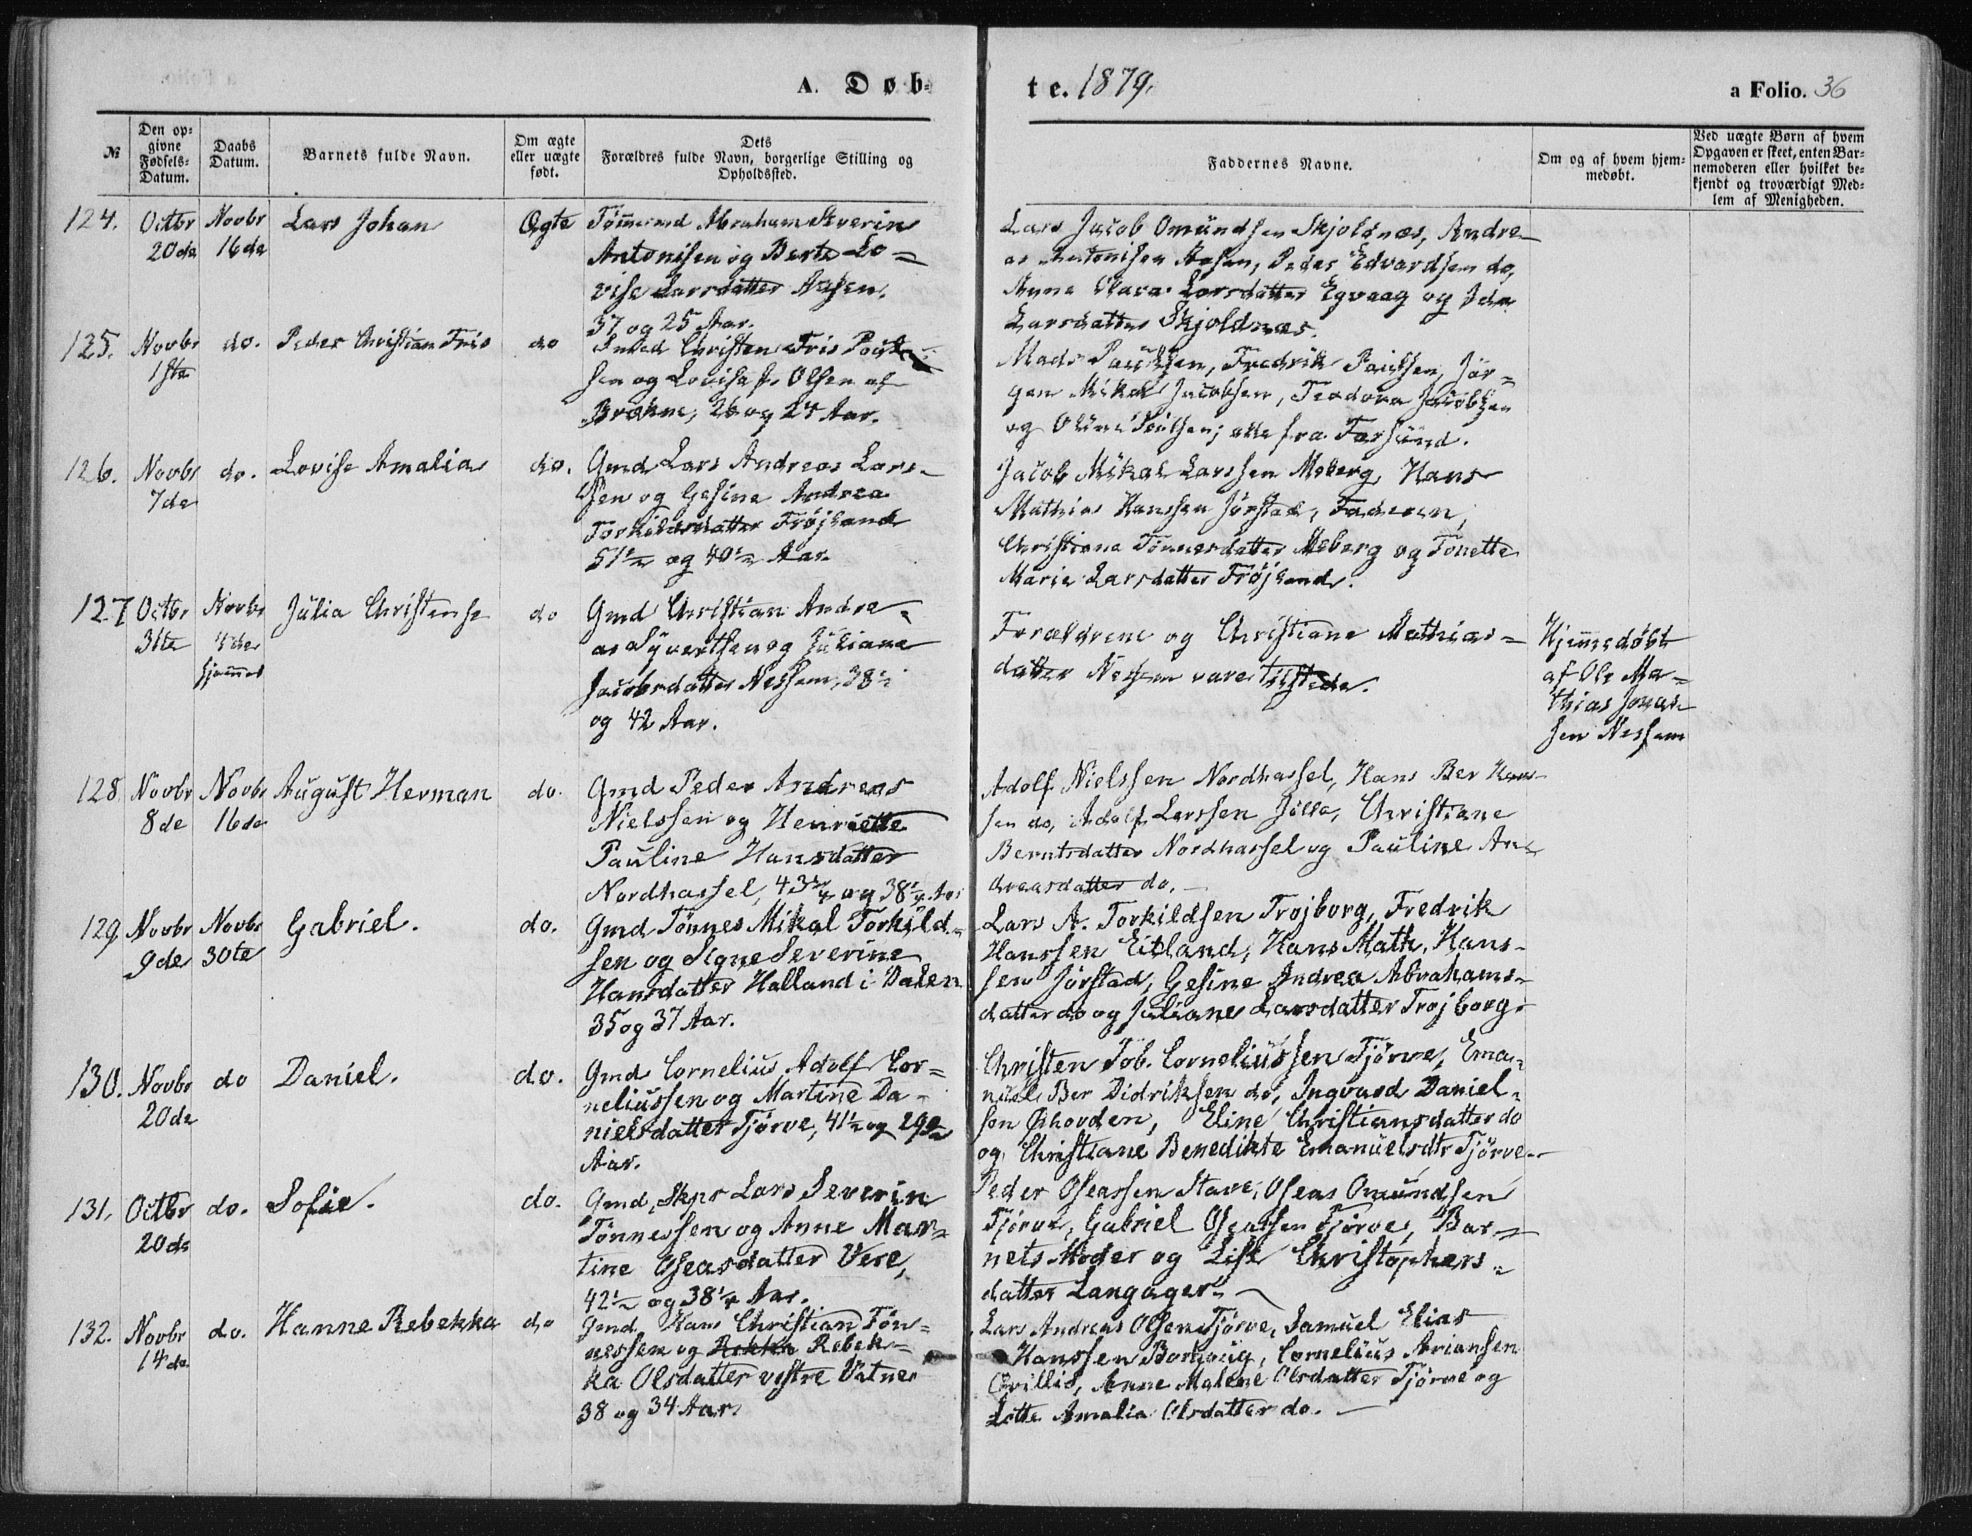 A. Døb-
te. 1879.
a Folio. 36
№
Den op-
givne
Fødsels-
Datum.
Daabs
Datum.
Barnets fulde Navn.
Om ægte
eller uægte
født.
Dets
Forældres fulde Navn, borgerlige Stilling og
Opholdssted.
Faddernes Navne.
Om og af hvem hjem-
medøbt.
Ved uægte Børn af hvem
Opgaven er skeet, enten Bar-
nemoderen eller hvilket be-
kjendt og troværdigt Med-
lem af Menigheden.
124.
Octbr
20de
Novbr
16de
Lars Johan
Ægte
Tømmermd Abraham Severin
Antonisen og Berte Lo-
vise Larsdatter Aasen,
37 og 25 Aar.
Lars Jacob Omundsen Skjoldnæs, Andre-
as Antonisen Aasen, Peder Edvardsen do,
Anne Larsdatter Egvaag og Ida
Larsdatter Skjoldnæs.
125.
Novbr
1ste
do.
Peder Christian Friis
do
Christen Friis
sen og Lovise f. Olsen af
26 og 24 Aar.
Mads Paulsen, Fredrik Paulsen, Jør-
gen Mikal Jacobsen, Teodora Jacobsen
og alle fra Farsund.
126.
Novbr
7de
do.
Lovise Amalia
do.
Gmd Lars Andreas Lars-
sen og Gesine Andrea
Torkildsdatter Trøjborg
51½ og 40½ Aar.
Jacob Mikal Larssen Meberg, Hans
Mathias Hanssen Jørstad, Faderen,
Christiane Tønnesdatter Meberg og Tonette
Marie Larsdatter
127
Octbr
31te
Novbr
4de
hjemmet
Julia Christense
do
Gmd Christian Andre-
as Syvertsen og Juliane
Jacobsdatter Nesheim, 38½
og 42 Aar.
Forældrene og Christiane Mathias-
datter Nesheim vare tilstede.
Hjemmedøbt
af Ole Ma-
thias Jonas-
sen Nesheim
128
Novbr
8de
Novbr
16de
August Herman
do.
Gmd Peder Andreas
Nielssen og Henriette
Pauline Hansdatter
Nordhassel, 43¼ og 38½ Aar
Adolf Nielssen Nordhassel, Hans Ber Hans-
sen do, Adolf Larssen Jølle, Christiane
Berntsdatter Nordhassel og Pauline An-
dreasdatter do.
129
Novbr
9de
Novbr
30te
Gabriel.
do.
Gmd Tønnes Mikal Torkild-
sen og Signe Severine
Hansdatter Halland i Dalen
35 og 37 Aar.
Lars A. Torkildsen Trøjborg, Fredrik
Hanssen Eitland, Hans Math. Hans-
sen Jørstad, Gesine Andrea Abrahams-
datter do og Juliane Larsdatter Trøjborg.
130.
Novbr
20de
do
Daniel.
do.
Gmd Cornelius Adolf Cor-
neliussen og Martine Da-
nielsdatter Tjørve, 41½ og 29½
Aar.
Christen Tob. Corneliussen Tjørve, Ema-
nuel Ber Didriksen do, Ingvard Daniel-
sen Ørhovden, Eline Christiansdatter do
og Christiane Benedikte Emanuelsdtr Tjørve.
131.
Octbr
20de
do.
Sofie.
do.
Gmd, Skpr Lars Severin
Tønnessen og Anne Mar-
tine Oseasdatter Vere,
42½ og 38¼ Aar.
Peder Oseassen Stave, Oseas Omundsen
Tjørve, Gabriel Oseassen Tjørve, Bar-
nets Moder og Lise Christophers-
datter Langager.
132.
Novbr
14de
do.
Hanne Rebekka
do
Gmd, Hans Christian Tøn-
nessen og Rebek-
ka Olsdatter vestre Vatne,
38 og 34 Aar.
Lars Andreas Olsen Tjørve, Samuel Elias
Hanssen Borhaug, Cornelius Ariansen
Qvillis, Anne Malene Olsdatter Tjørve og
Lotte Amalia Olsdatter do.